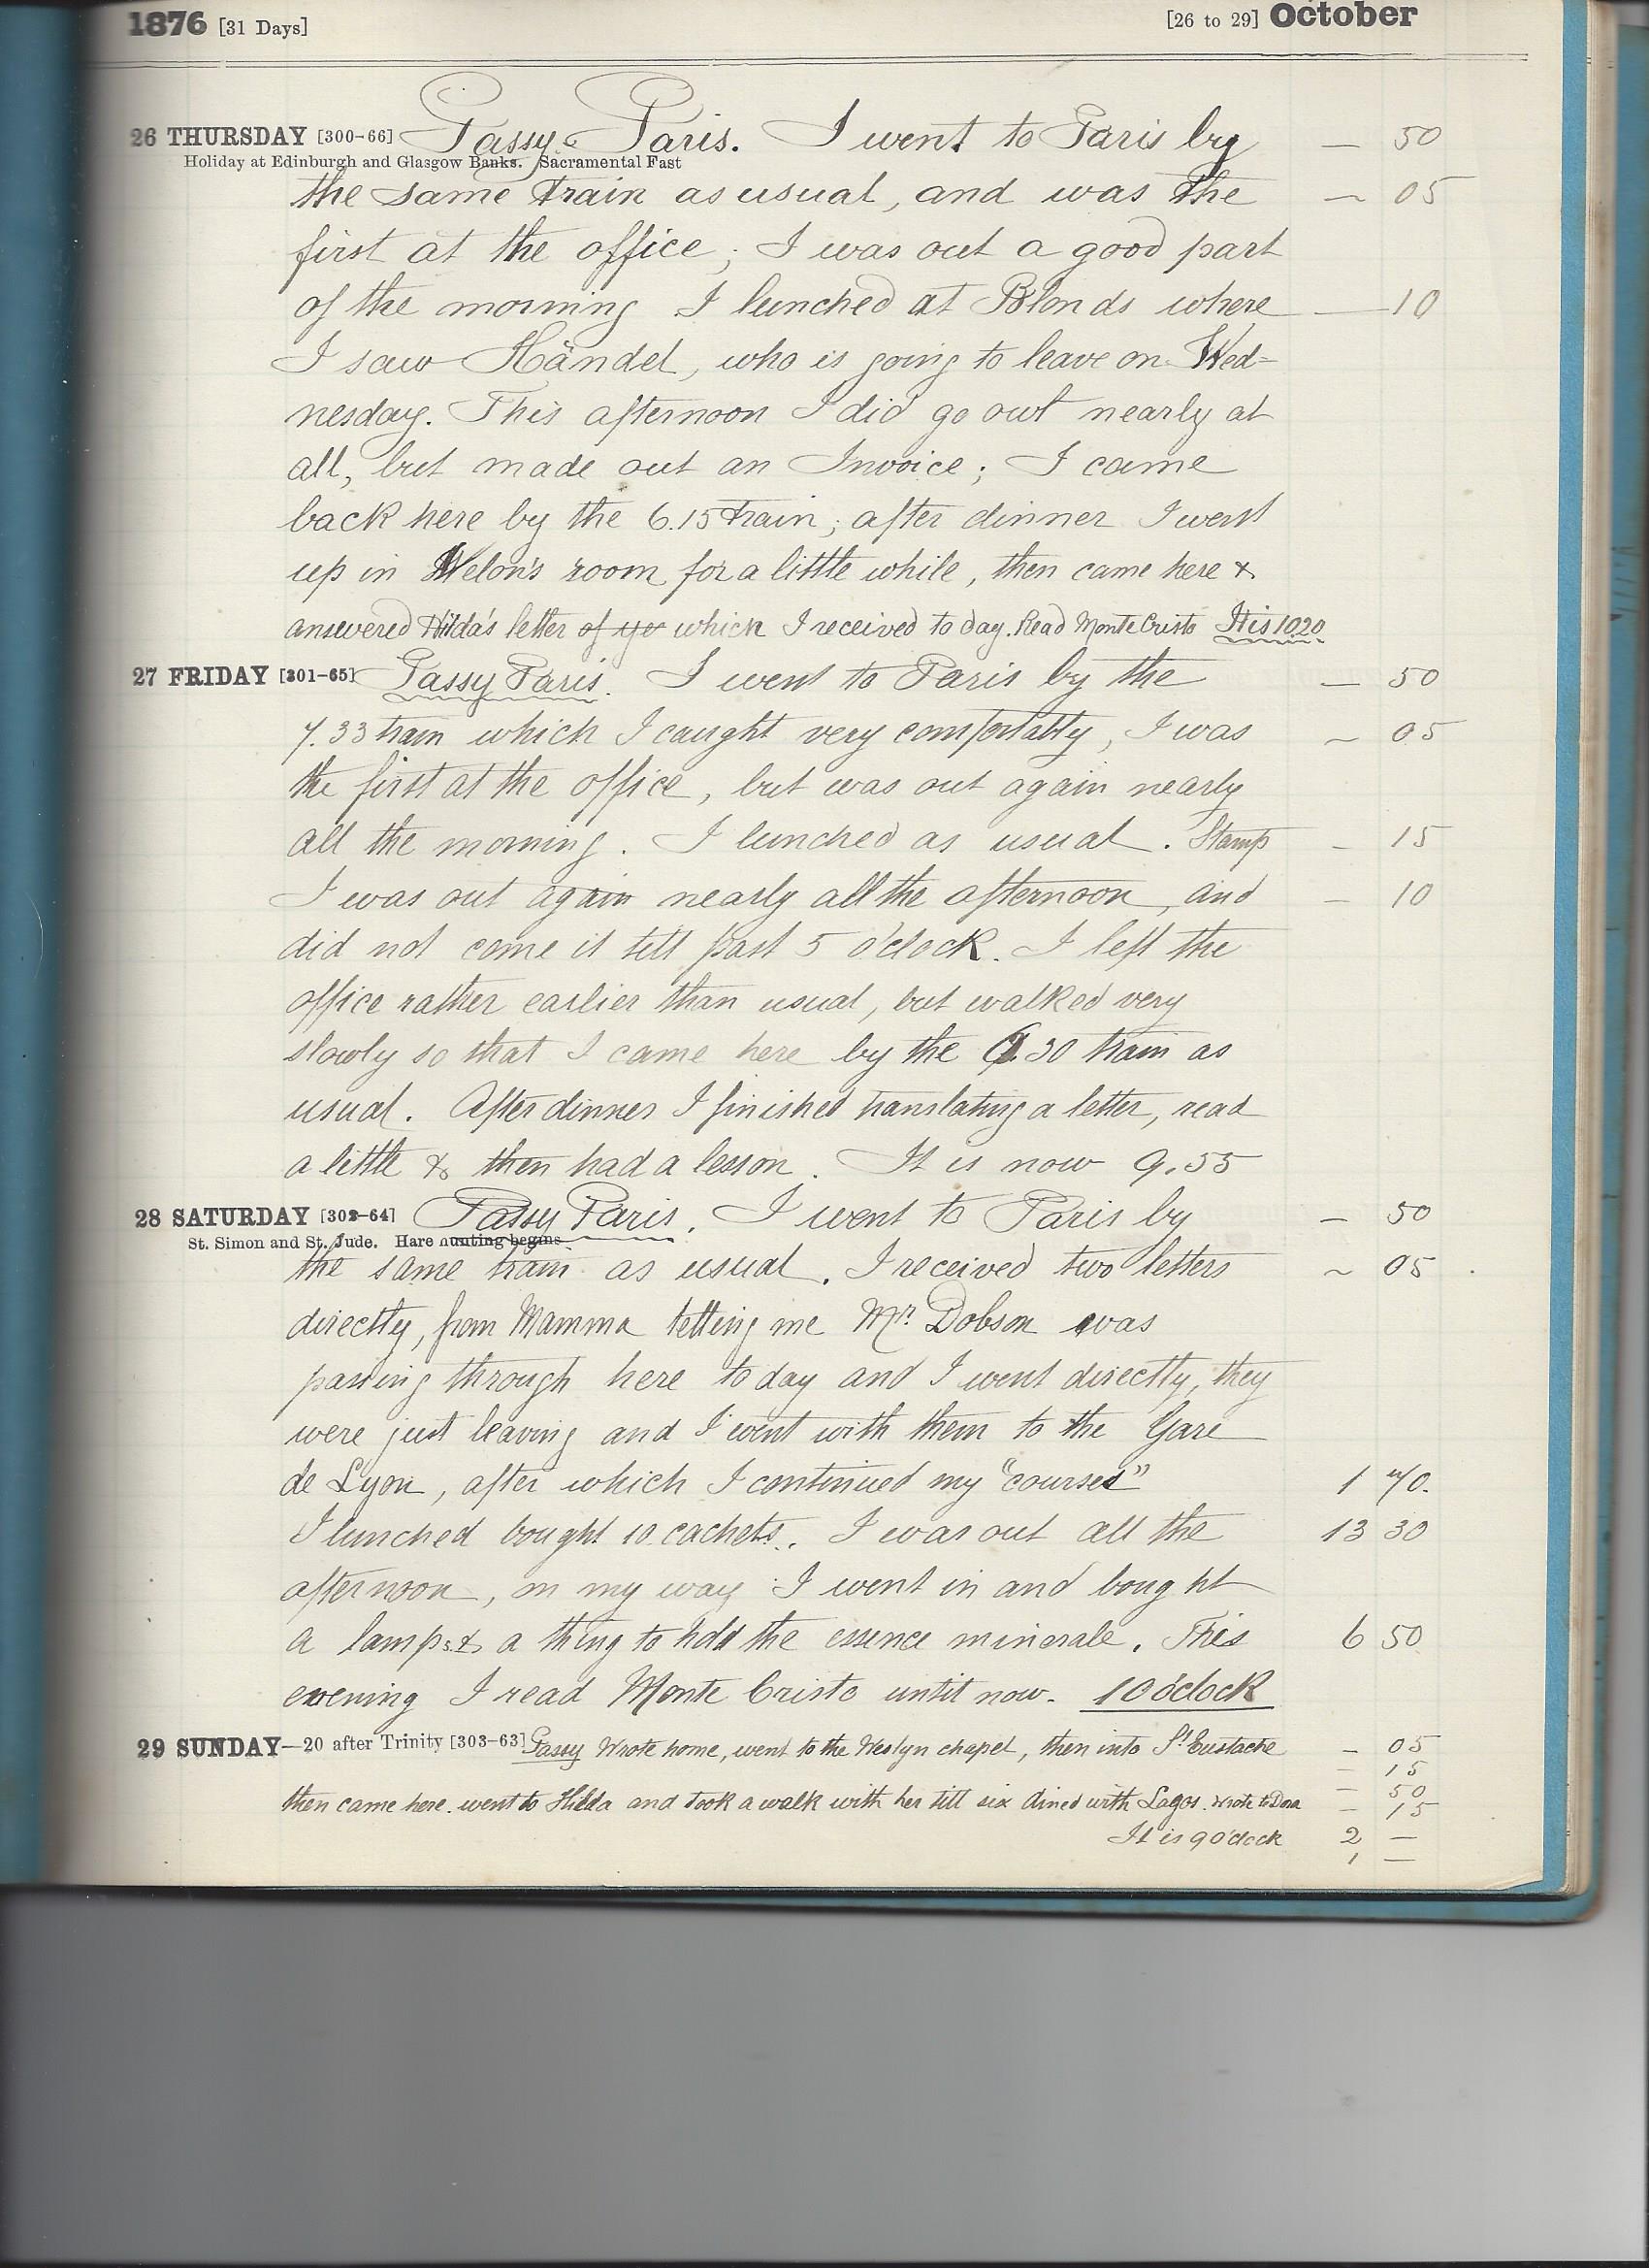 1876 [31 Days] [26 to 29] October
26 THURSDAY [300-66] Passy Paris. I went to Paris by — 50
Holiday at Edinburgh and Glasgow Banks. Sacramental Fast
the same train as usual, and was the — 05
first at the office; I was out a good part
of the morning I lunched at Blonds where — 10
I saw Händel, who is going to leave on Wed=
nesday. This afternoon I did go out nearly at
all, but made out an Invoice; I came
back here by the 6.15 train; after dinner I went
up in Welon's room for a little while, then came here &
answered Hilda's letter of yo which I received to day. Read Monte Cristo It is 10.20
27 FRIDAY [301-65] Passy Paris. I went to Paris by the — 50
7.33 train which I caught very comfortably, I was ~ 05
the first at the office, but was out again nearly
all the morning. I lunched as usual. Stamp - 15
I was out again nearly all the afternoon, and - 10
did not come it till past 5 o'clock. I left the
office rather earlier than usual, but walked very
slowly so that I came here by the 6.30 train as
usual. After dinner I finished translating a letter, read
a little & then had a lesson. It is now 9.55
28 SATURDAY [302-64] Passy Paris. I went to Paris by — 50
St. Simon and St. Jude. Hare hunting begins.
the same train as usual. I received two letters ~ 05
directly, from Mamma telling me Mr. Dobson was
passing through here to day and I went directly, they
were just leaving and I went with them to the Gare
de Lyon, after which I continued my "courses" 1 70.
I lunched bought 10 cachets. I was out all the 13 30
afternoon, on my way I went in and bought
a lamp & a thing to hold the essence minerale. This 6 50
evening I read Monte Cristo until now. 10 o'clock
29 SUNDAY—20 after Trinity [303-63] Passy Wrote home, went to the Weslyn chapel, then into St. Eustache - 05
- 15
then came here. went to Hilda and took a walk with her till six dined with Lagos. Wrote to Dora - 50
- 15
It is 9 o'clock 2 —
1 —